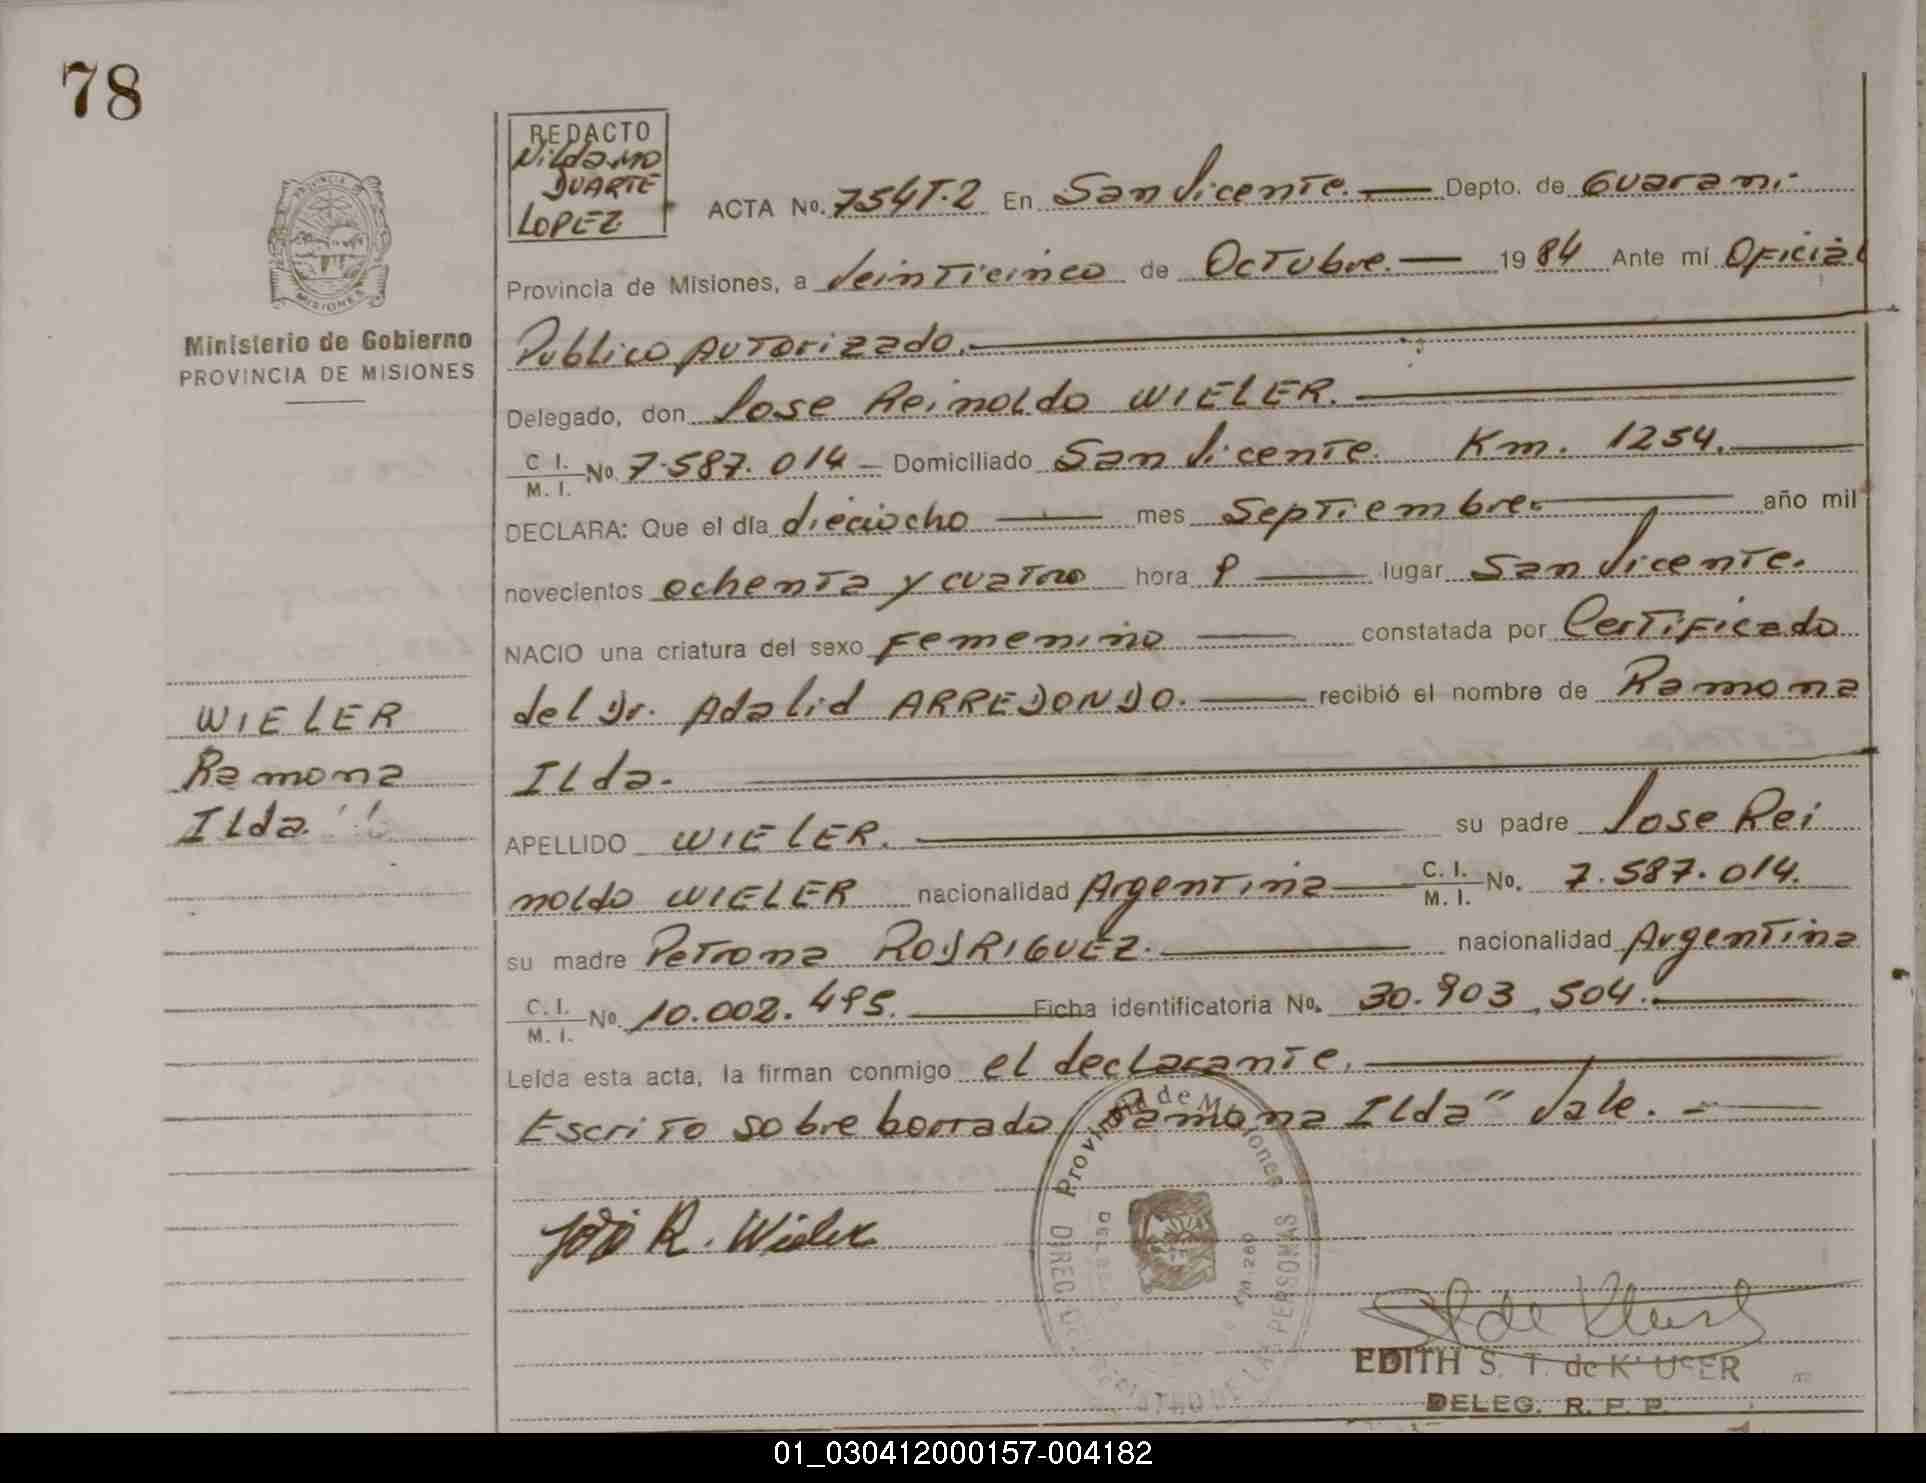 78
PROVINCIA DE
MISIONES
Ministerio de Gobierno
PROVINCIA DE MISIONES
WIELER
Ramona
Ilda.
REDACTO
Nilda MO
DUARTE
LOPEZ.
ACTA No. 754T.2 En San Vicente. Depto. de Guarani
Provincia de Misiones, a Veinticinco de Octubre. 1984 Ante mí Oficial
Publico Autorizado.
Delegado, don Jose Reinoldo WIELER.
C I. M. I. No. 7.587.014 Domiciliado San Vicente. Km. 1254.
DECLARA: Que el día dieciocho mes Septiembre. año mil
novecientos ochenta y cuatro hora lugar San Vicente.
NACIO una criatura del sexo Femenino constatada por Certificado
del Dr. Adalid ARREDONDO. recibió el nombre de Ramona
Ilda.
APELLIDO WIELER. su padre Jose Rei
noldo WIELER nacionalidad Argentina C. I. M. I. No. 7.587.014.
su madre Petrona RODRIGUEZ. nacionalidad Argentina
C. I. M. I. No. 10.002.495. Ficha identificatoria No. 30.903.504.
Leída esta acta, la firman conmigo el declarante.
Escrito sobre borrado "Ramona Ilda" Vale.
Provincia de Misiones
José R. Wieler
EDITH S. T. de
DELEG. R. P. P.
01_030412000157-004182